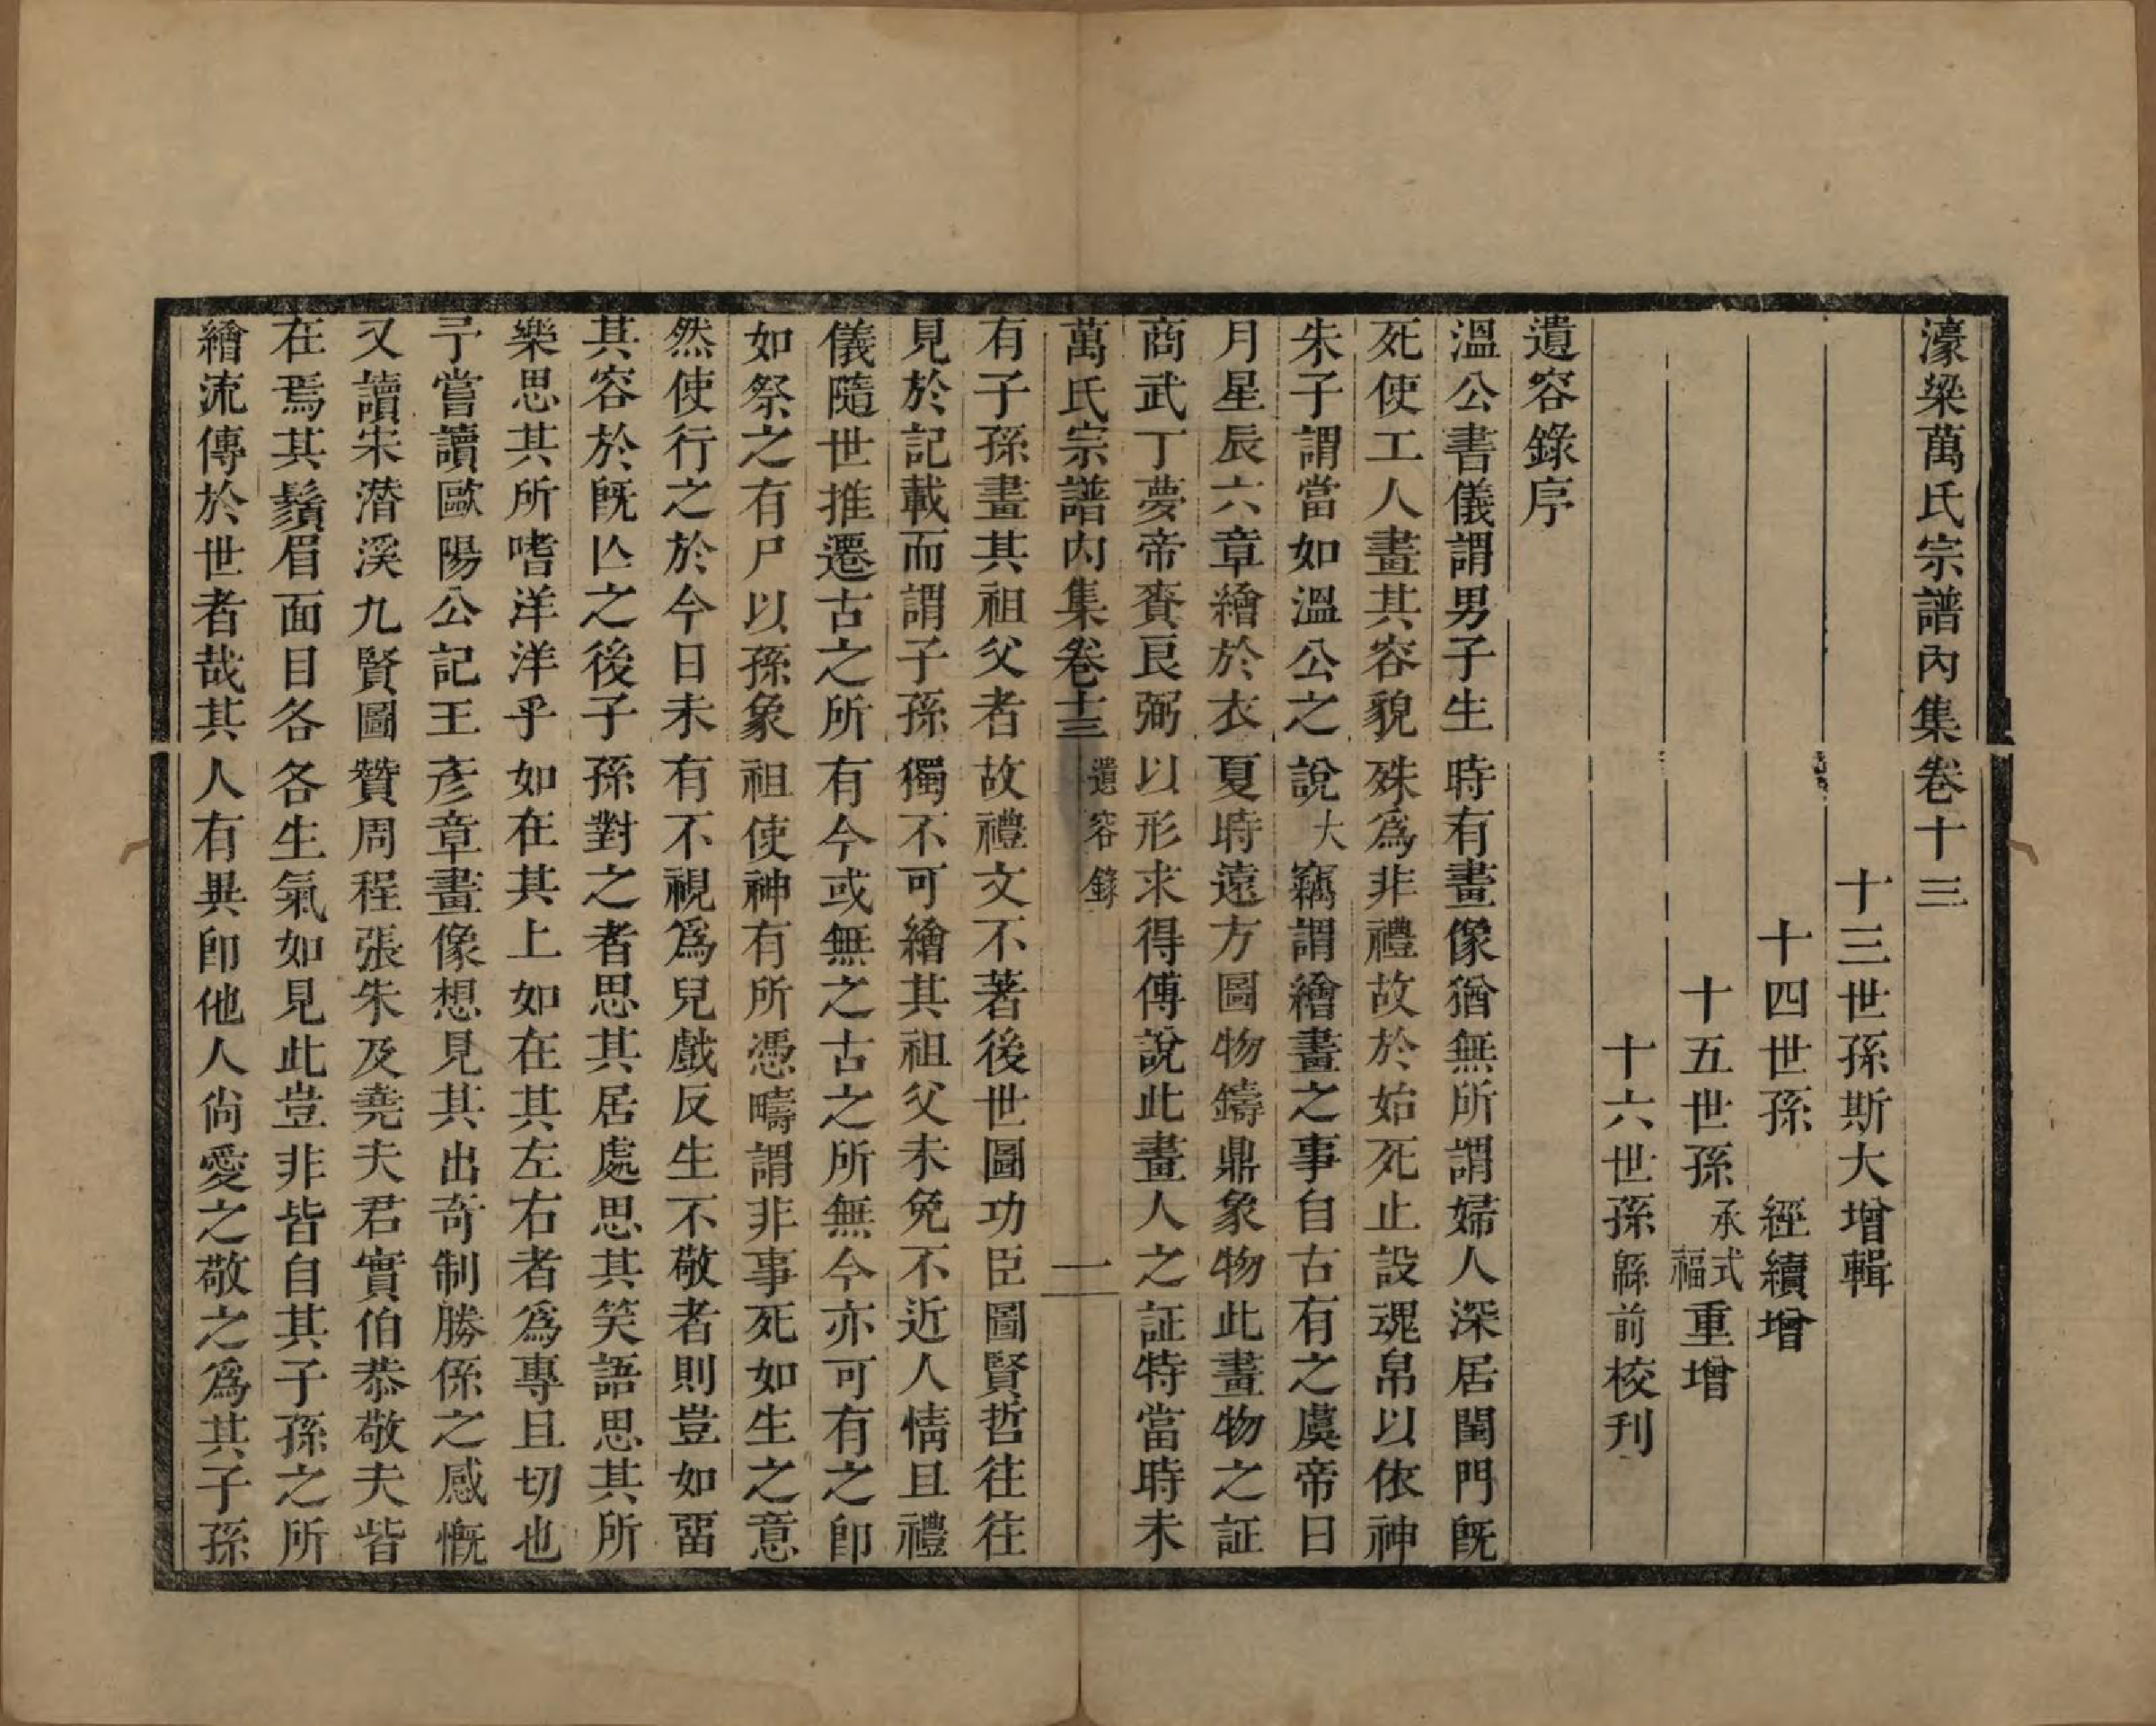 濠梁萬氏宗譜內集卷十三
十三世孫斯大增輯
十四世孫　經續增
十五世孫承式福重增
十六世孫縣前校刊
遺容錄序
溫公書儀謂男子生時有畫像猶無所謂婦人深居閨門旣
死使工人畫其容貌殊爲非禮故於始死止設魂帛以依神
朱子謂當如溫公之說大竊謂繪畫之事自古有之虞帝日
月星辰六章繪於衣夏時遠方圖物鑄鼎象物此畫物之証
商武丁夢帝賚良弼以形求得傅說此畫人之証特當時未
萬氏宗譜內集卷十三　遺容錄　一
有子孫畫其祖父者故禮文不著後世圖功臣圖賢哲往往
見於記載而謂子孫獨不可繪其祖父未免不近人情且禮
儀隨世推遷古之所有今或無之古之所無今亦可有之卽
如祭之有尸以孫象祖使神有所憑疇謂非事死如生之意
然使行之於今日未有不視爲兒戲反生不敬者則豈如畱
其容於旣亾之後子孫對之者思其居處思其笑語思其所
樂思其所嗜洋洋乎如在其上如在其左右者爲專且切也
予嘗讀歐陽公記王彥章畫像想見其出奇制勝係之感慨
又讀宋濳溪九賢圖贊周程張朱及堯夫君實伯恭敬夫皆
在焉其鬚眉面目各各生氣如見此豈非皆自其子孫之所
繪流傳於世者哉其人有異卽他人尙愛之敬之爲其子孫